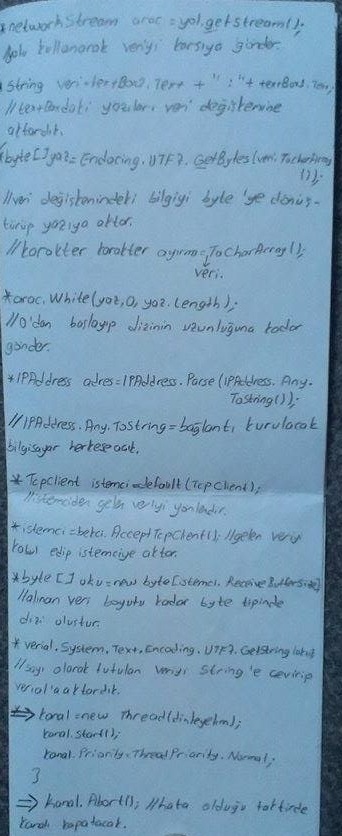 *networkStream arac = yol.getStream();
Yolu kullanarak veriyi karşıya gönder.
*String veri=textBox2.Text + " : " + textBox1.Text;
//textBoxdaki yazıları veri değişkenine
aktardık.
*byte[] yaz= Encoding.UTF7.GetBytes(veri.ToCharArray
());
//veri değişkenindeki bilgiyi byte 'ye dönüş-
türüp yazıya aktar.
//karakter karakter ayırma=ToCharArray();
veri.
*arac.White(yaz,0,yaz.Length);
//0'dan başlayıp dizinin uzunluğuna kadar
gönder.
*IPAddress adres=IPAddress.Parse(IPAddress.Any.
ToString());
//IPAddress.Any.ToString=bağlantı kurulacak
bilgisayar herkese açık.
*Tcpclient istemci=default(TcpClient);
//istemciden gelen veriyi yönlendir.
*istemci=bekci.AcceptTcpClient(); //gelen veriyi
kabul edip istemciye aktar.
*byte[] oku=new byte[istemci.ReceiveBufferSize]
//alınan veri boyutu kadar byte tipinde
dizi oluştur.
*verial.System.Text.Encoding.UTF7.GetString(oku)
//sayı olarak tutulan veriyi String'e çevirip
verial'a aktardık.
*⇒ kanal=new Thread(dinleyelim);
kanal.Start();
kanal.Priority=ThreadPriority.Normal;
}
⇒ kanal.Abort(); //hata olduğu taktirde
kanalı kapatacak.